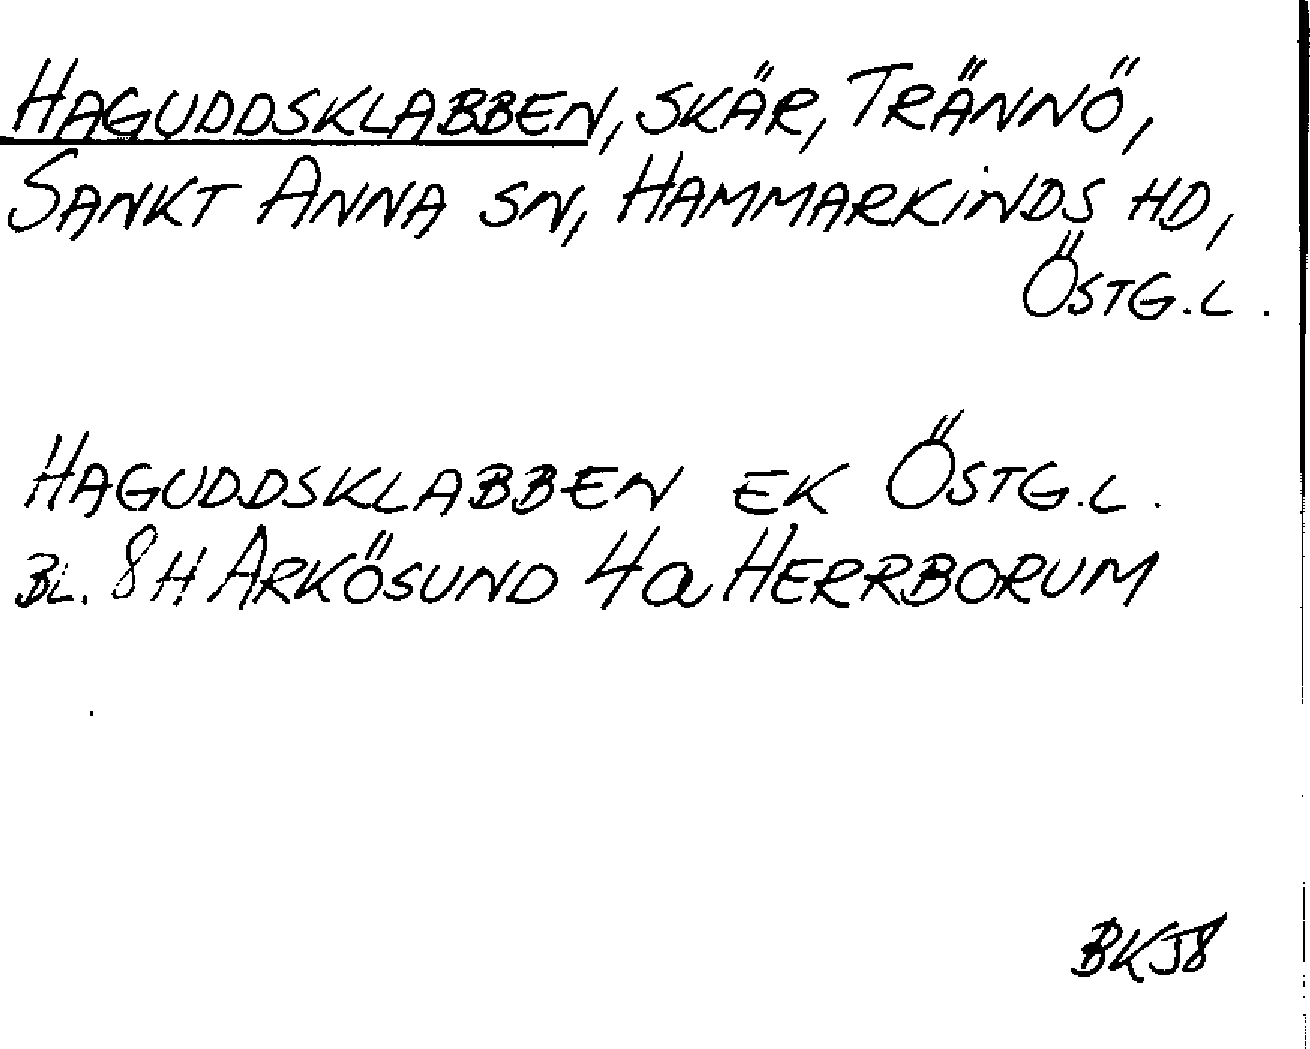 HAGUDDSKLABBEN, SKÄR, TRÄNNÖ,
SANKT ANNA SN, HAMMARKINDS HD,
ÖSTG.L.
HAGUDDSKLABBEN EK ÖSTG.L.
BL. 8H ARKÖSUND 4a HERRBORUM
BKJ8